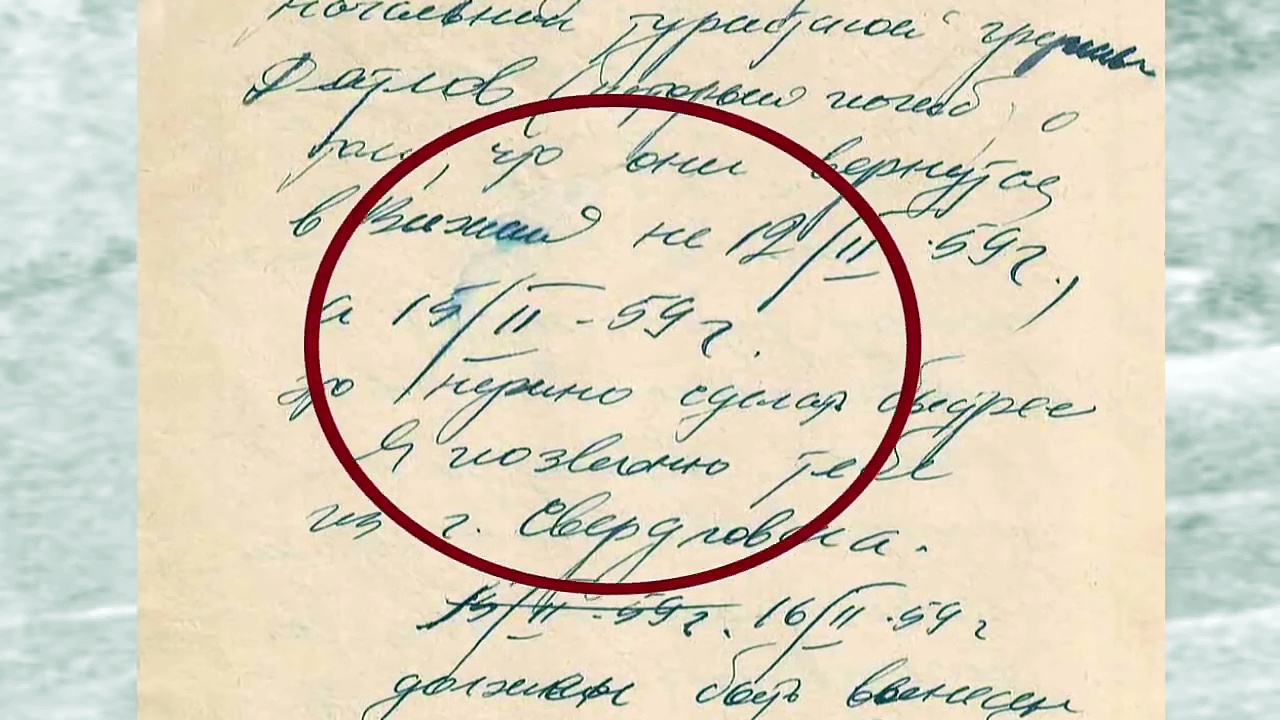 начальник туристской группы
Дятлов (который погиб) о
том, что они вернутся
в Вижай не 12/II .59г.,
а 15/II - 59г.
это нужно сделать быстрее
Я позвоню тебе
из г. Свердловска.
15/II.59г. 16/II.59г
должен быть